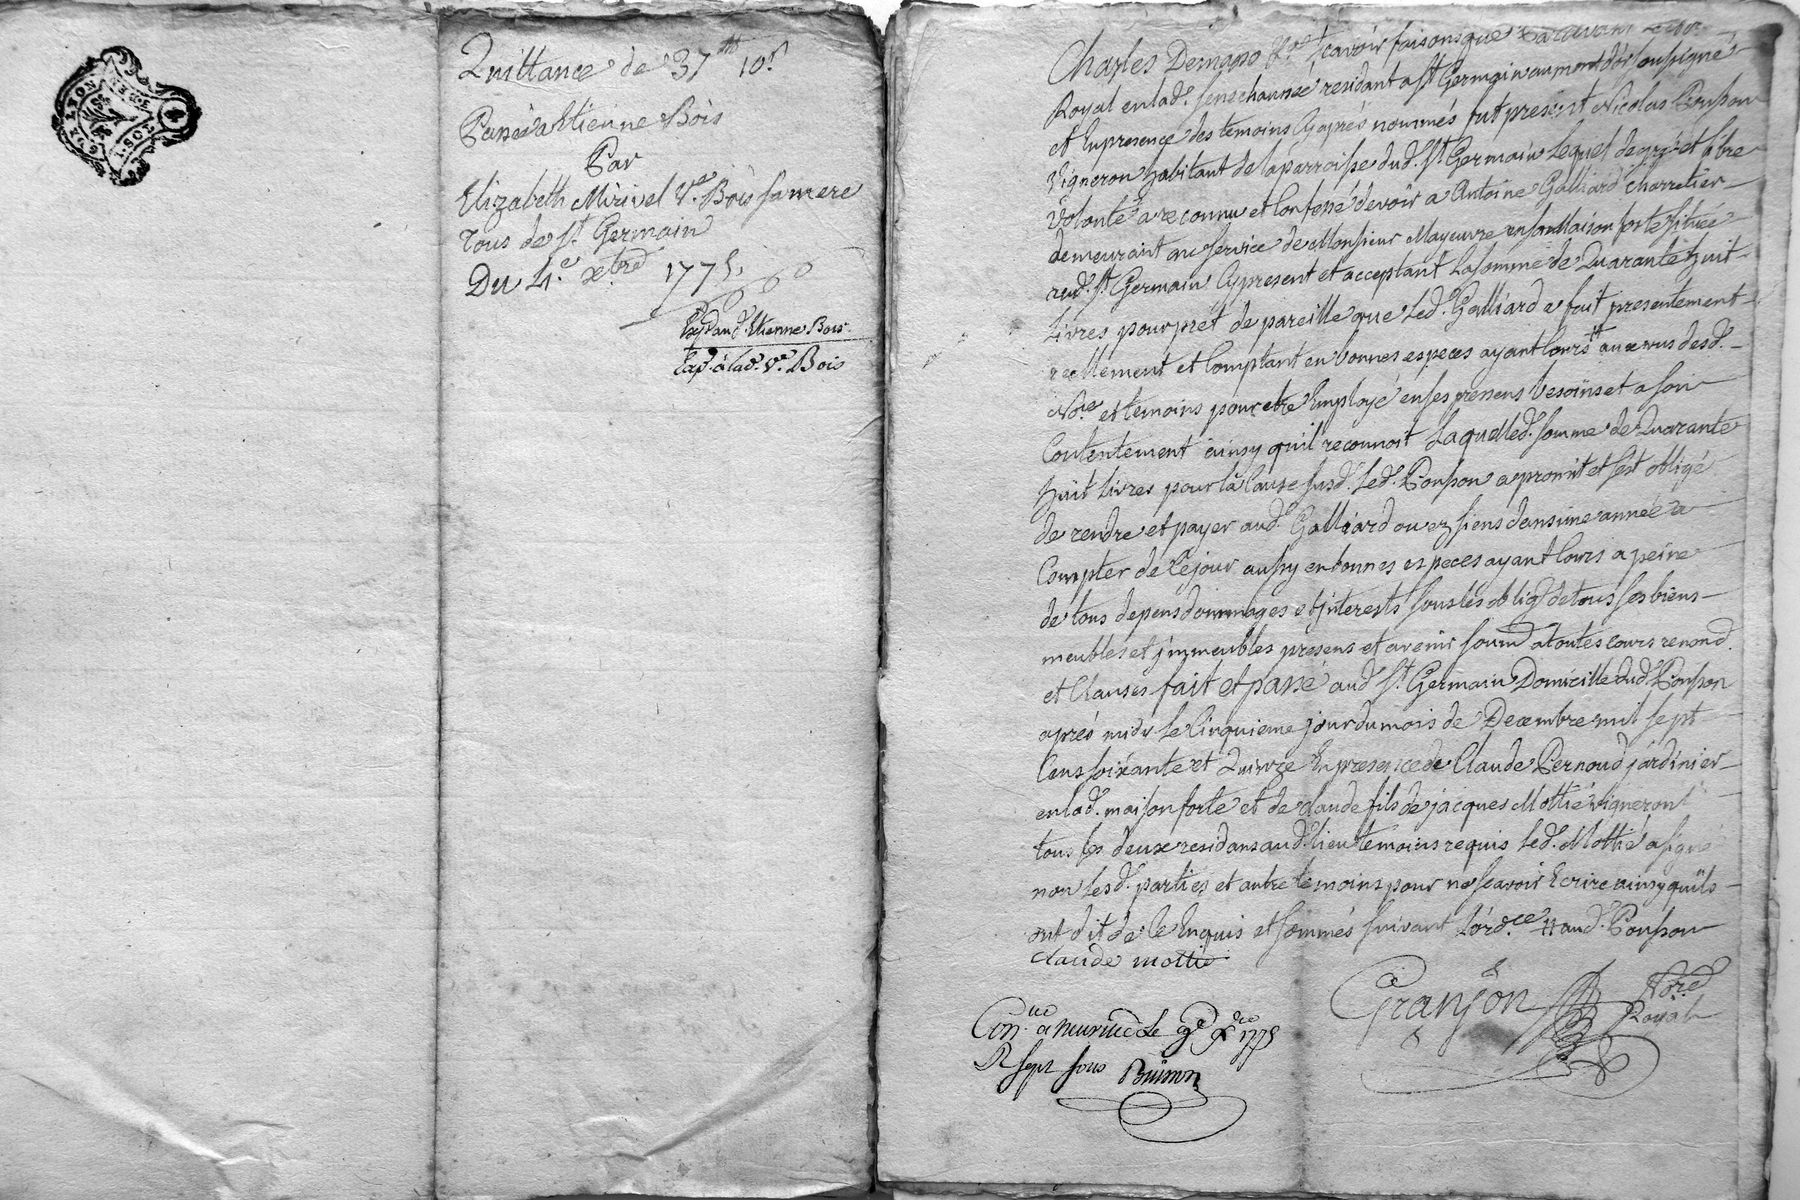 GEN. LYON
Quittance de 37tt 10s
Passé a Etienne Bois
Par
Elizabeth Mirivel Ve. Bois sa mere
Tous de St. Germain
Du 4e. xbre 1775.
Exp. aud. Etienne Bois
Exp. à lad. Ve. Bois
Charles Demapo scavoir faisons que Pardevant
Royal en lad. senechaussée residant a St Germain au mont d'or soussigné
et En presence des temoins Cy après nommés fut present Nicolas Ponson
Vigneron habitant de la parroisse dud. St Germain Lequel de gré et libre
Volonté a reconnu et Confessé devoir a Antoine Galliard charretier
demeurant au service de Monsieur Mayeuvre en sa Maison forte située
aud. St Germain Cy present et acceptant La somme de Quarante huit
Livres pour prêt de pareille que Led. Galliard a fait presentement
reellement et Comptant en bonnes especes ayant Cours tt aux vus desd.
Nore et temoins pour etre Employé en ses presens besoins et a son
Contentement ainsy quil reconnoit Laquelled. somme de Quarante
huit Livres pour la Cause susd. Led. Ponson a promit et s'est obligé
de rendre et payer aud. Galliard ou ez siens dans une année a
Compter de Ce jour aussy en bonnes especes ayant Cours a peine
de tous depens dommages et interests sous les oblig. de tous ses biens
meubles et jmmeubles presens et avenir soum. a toutes Cours renond.
et Clauses fait et passé aud. St. Germain Domicille dud. Ponson
après midy Le Cinquieme jour du mois de Decembre mil sept
Cens soixante et Quinze En presence de Claude Pernoud jardinier
en lad. maison forte et de claude fils de jacques Mottié vigneron
tous les deux residans aud. lieu temoins requis Led. Mottié a signé
non lesd. parties et autre temoins pour ne scavoir Ecrire ainsy quils
ont dit de Ce Enquis et sommés suivant L'ordce tt aud. Ponson
Claude mottié
Granjon Nore Royal
Con.ue a neuville Le 9e xbre 1775
R sept sous Buisson